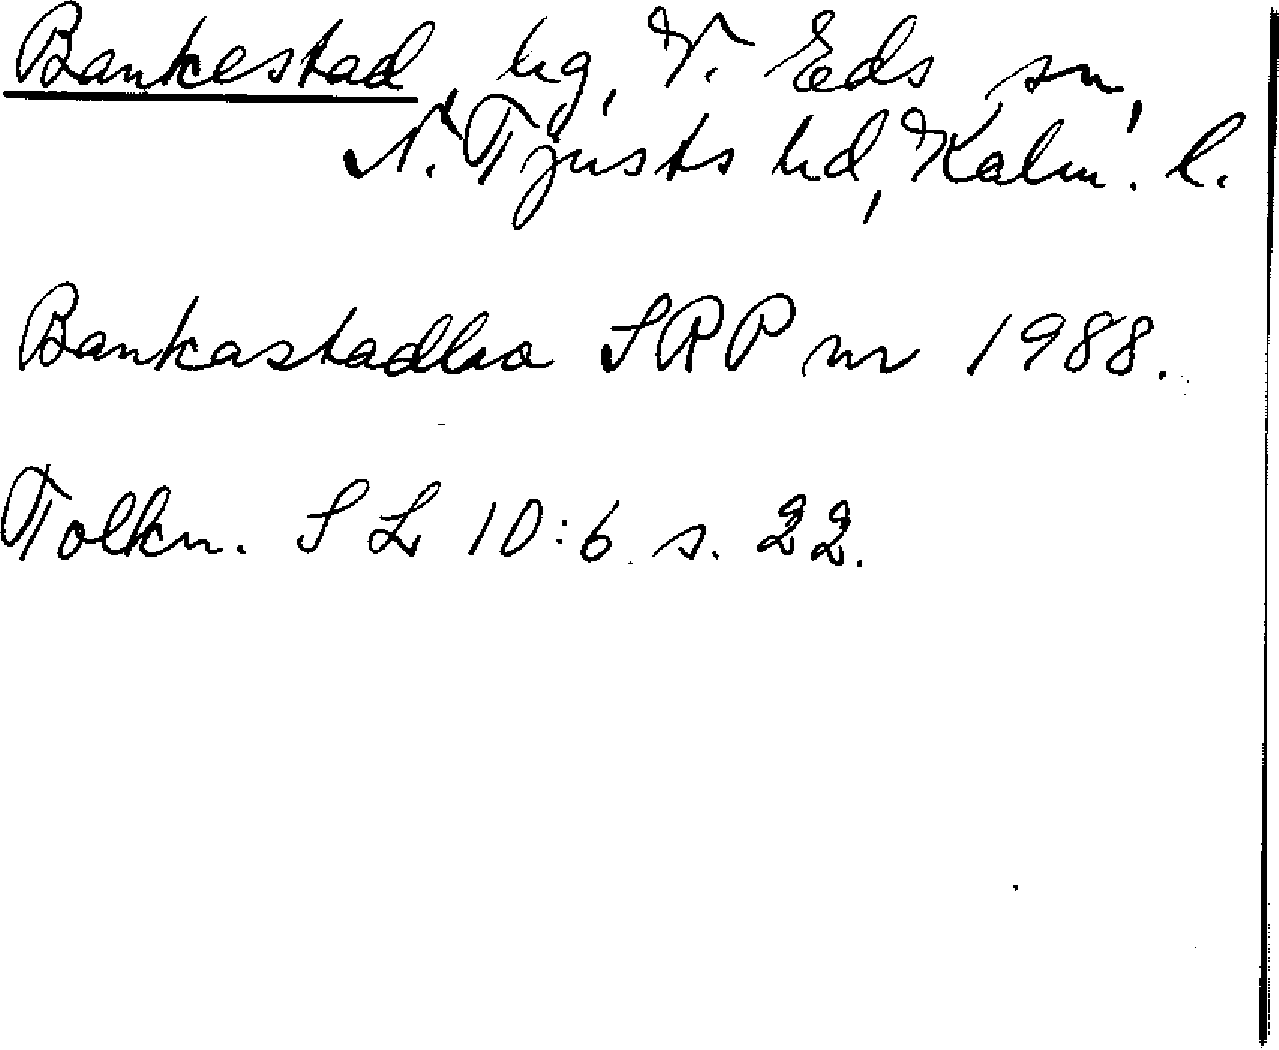 Bankestad hg, V. Eds sn,
N. Tjusts hd, Kalm. l.
Bankastadha SRP nr 1988.
Tolkn. SL 10:6 s. 22.